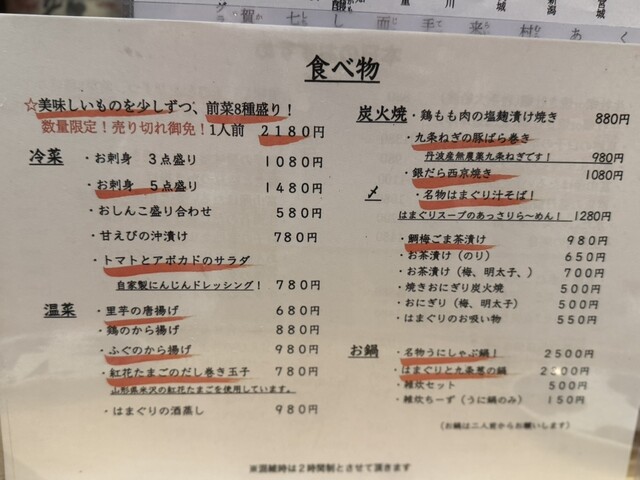 食べ物
☆美味しいものを少しずつ、前菜8種盛り！
数量限定！売り切れ御免！1人前 2180円
冷菜
・お刺身 3点盛り 1080円
・お刺身 5点盛り 1480円
・おしんこ盛り合わせ 580円
・甘えびの沖漬け 780円
・トマトとアボカドのサラダ
自家製にんじんドレッシング！ 780円
温菜
・里芋の唐揚げ 680円
・鶏のから揚げ 880円
・ふぐのから揚げ 980円
・紅花たまごのだし巻き玉子 780円
山形県米沢の紅花たまごを使用しています。
・はまぐりの酒蒸し 980円
炭火焼 ・鶏もも肉の塩麹漬け焼き 880円
・九条ねぎの豚ばら巻き
丹波産無農薬九条ねぎです！ 980円
・銀だら西京焼き 1080円
〆 ・名物はまぐり汁そば！
はまぐりスープのあっさりら～めん！ 1280円
・鯛梅ごま茶漬け 980円
・お茶漬け（のり） 650円
・お茶漬け（梅、明太子、） 700円
・焼きおにぎり炭火焼 500円
・おにぎり（梅、明太子） 500円
・はまぐりのお吸い物 550円
お鍋 ・名物うにしゃぶ鍋！ 2500円
・はまぐりと九条葱の鍋 2300円
・雑炊セット 500円
・雑炊ちーず（うに鍋のみ） 150円
（お鍋は二人前からお願いします）
※混雑時は2時間制とさせて頂きます